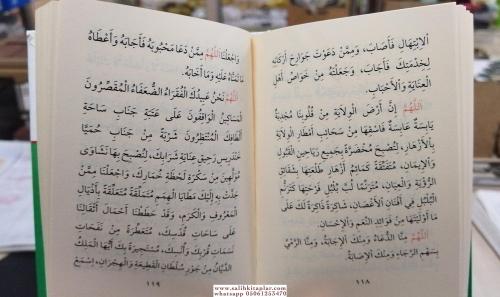 الِابْتِهَالِ فَأَصَابَ، وَمِمَّنْ دَعَوْتَ جَوَارِحَ أَرْكَانِهِ
لِخِدْمَتِكَ فَأَجَابَ، وَجَعَلْتَهُ مِنْ خَوَاصِّ أَهْلِ
الْعِنَايَةِ وَالْأَحْبَابِ.
اَللّٰهُمَّ إِنَّ أَرْضَ الْوِلَايَةِ مِنْ قُلُوبِنَا مُجْدِبَةٌ
يَابِسَةٌ عَابِسَةٌ فَاسْقِهَا مِنْ سَحَائِبِ أَمْطَارِ الْوِلَايَةِ
بِالْأَزْهَارِ، لِتُصْبِحَ مُخْضَرَّةً بِجَمِيعِ رَيَاحِينِ الْقَبُولِ
وَالْإِيمَانِ، مُتَفَتِّقَةً كَمَائِمُ أَزْهَارِ طَلْعَتِهَا بِشَقَائِقِ
الرُّؤْيَةِ وَالْعِيَانِ، مُتَرَنِّمًا لُبُّ بُلْبُلِ فَرْحَتِهَا كَتَرَنُّمِ
الْبُلْبُلِ فِي أَفْنَانِ الْأَغْصَانِ، شَاكِرَةً ذَاكِرَةً لَكَ عَلَى
مَا أَوْلَيْتَهَا مِنْ فَوَائِدِ النِّعَمِ وَالْإِحْسَانِ.
اَللّٰهُمَّ مِنَّا الدُّعَاءُ وَمِنْكَ الْإِجَابَةُ، وَمِنَّا الرَّمْيُ
بِسَهْمِ الرَّجَاءِ وَمِنْكَ الْإِصَابَةُ.
١١٨
وَاجْعَلْنَا اللّٰهُمَّ مِمَّنْ دَعَا مَحْبُوبَهُ فَأَجَابَهُ وَأَعْطَاهُ
مَا تَمَنَّاهُ عَلَيْهِ وَمَا أَخَابَهُ.
اَللّٰهُمَّ نَحْنُ عَبِيدُكَ الْفُقَرَاءُ الضُّعَفَاءُ الْمُقَصِّرُونَ
الْمَسَاكِينُ الْوَاقِفُونَ عَلَى عَتَبَةِ جَنَابِ سَاحَةِ
أَلْطَافِكَ الْمُنْتَظِرُونَ شَرْبَةً مِنْ جَنَابِ حُمَيَّا
خَنْدَرِيسِ رَحِيقِ عِنَايَةِ شَرَابِكَ، لِنُصْبِحَ بِهَا نَشَاوَى
مُوَلَّهِينَ مِنْ سَكْرَةِ لَحْظَةِ خُمَارِكَ، وَاجْعَلْنَا مِمَّنْ
جَدَّتْ بِهِ إِلَيْكَ مَطَايَا الْهِمَمِ مُتَمَلِّقَةً مُتَعَلِّقَةً بِأَذْيَالِ
الْمَعْرُوفِ وَالْكَرَمِ، وَقَدْ حَطَطْنَا أَحْمَالَ أَثْقَالِنَا
عَلَى سَاحَاتِ قُدْسِكَ، مُتَعَطِّرَةً مِنْ نَفَحَاتِ
نَسَمَاتِ قُرْبِكَ وَأُنْسِكَ، مُسْتَجِيرَةً بِكَ أَيُّهَا الْمَلِكُ
الدَّيَّانُ مِنْ جَوْرِ سُلْطَانِ الْقَطِيعَةِ وَالْهِجْرَانِ، اِسْمَعْ
١١٩
www.salihkitaplar.com
whatsapp 05061253470